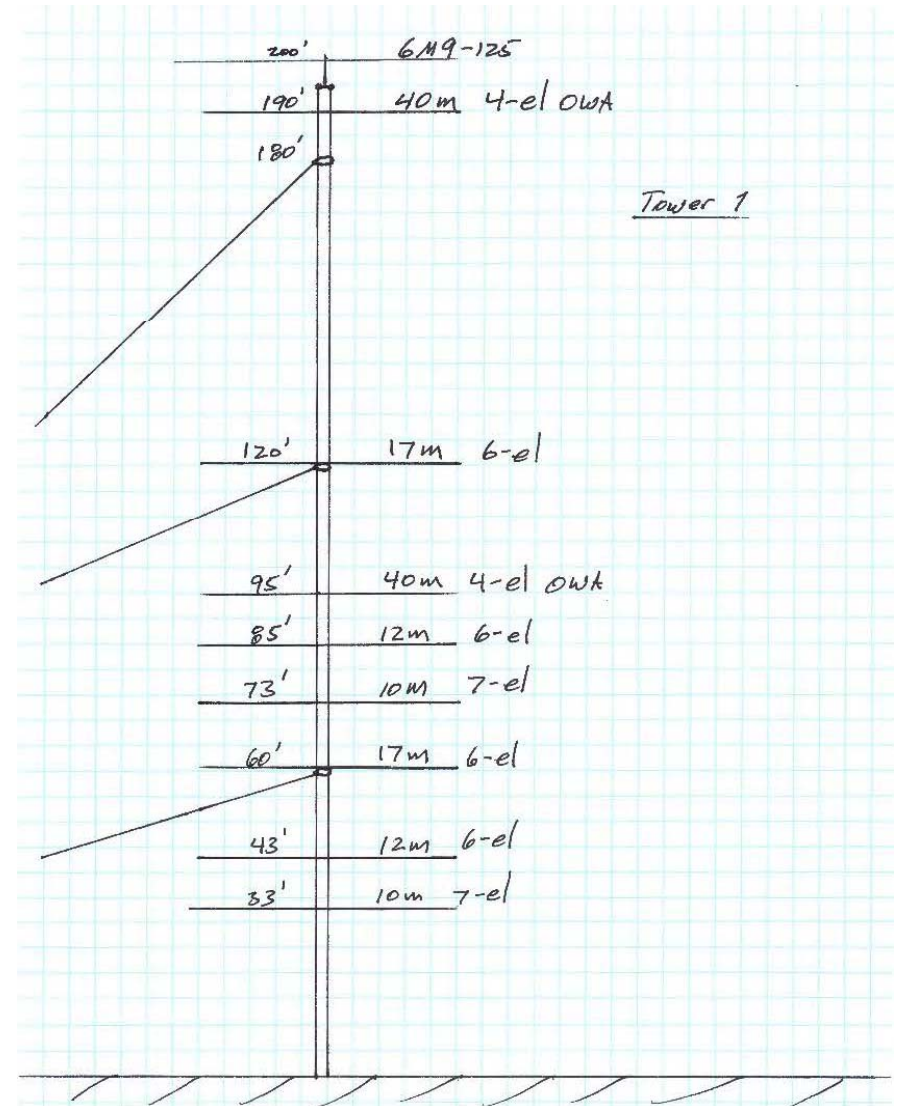 200' 6M9-125
190' 40m 4-el OWA
180'
Tower 1
120' 17m 6-el
95' 40m 4-el OWA
85' 12m 6-el
73' 10m 7-el
60' 17m 6-el
43' 12m 6-el
33' 10m 7-el